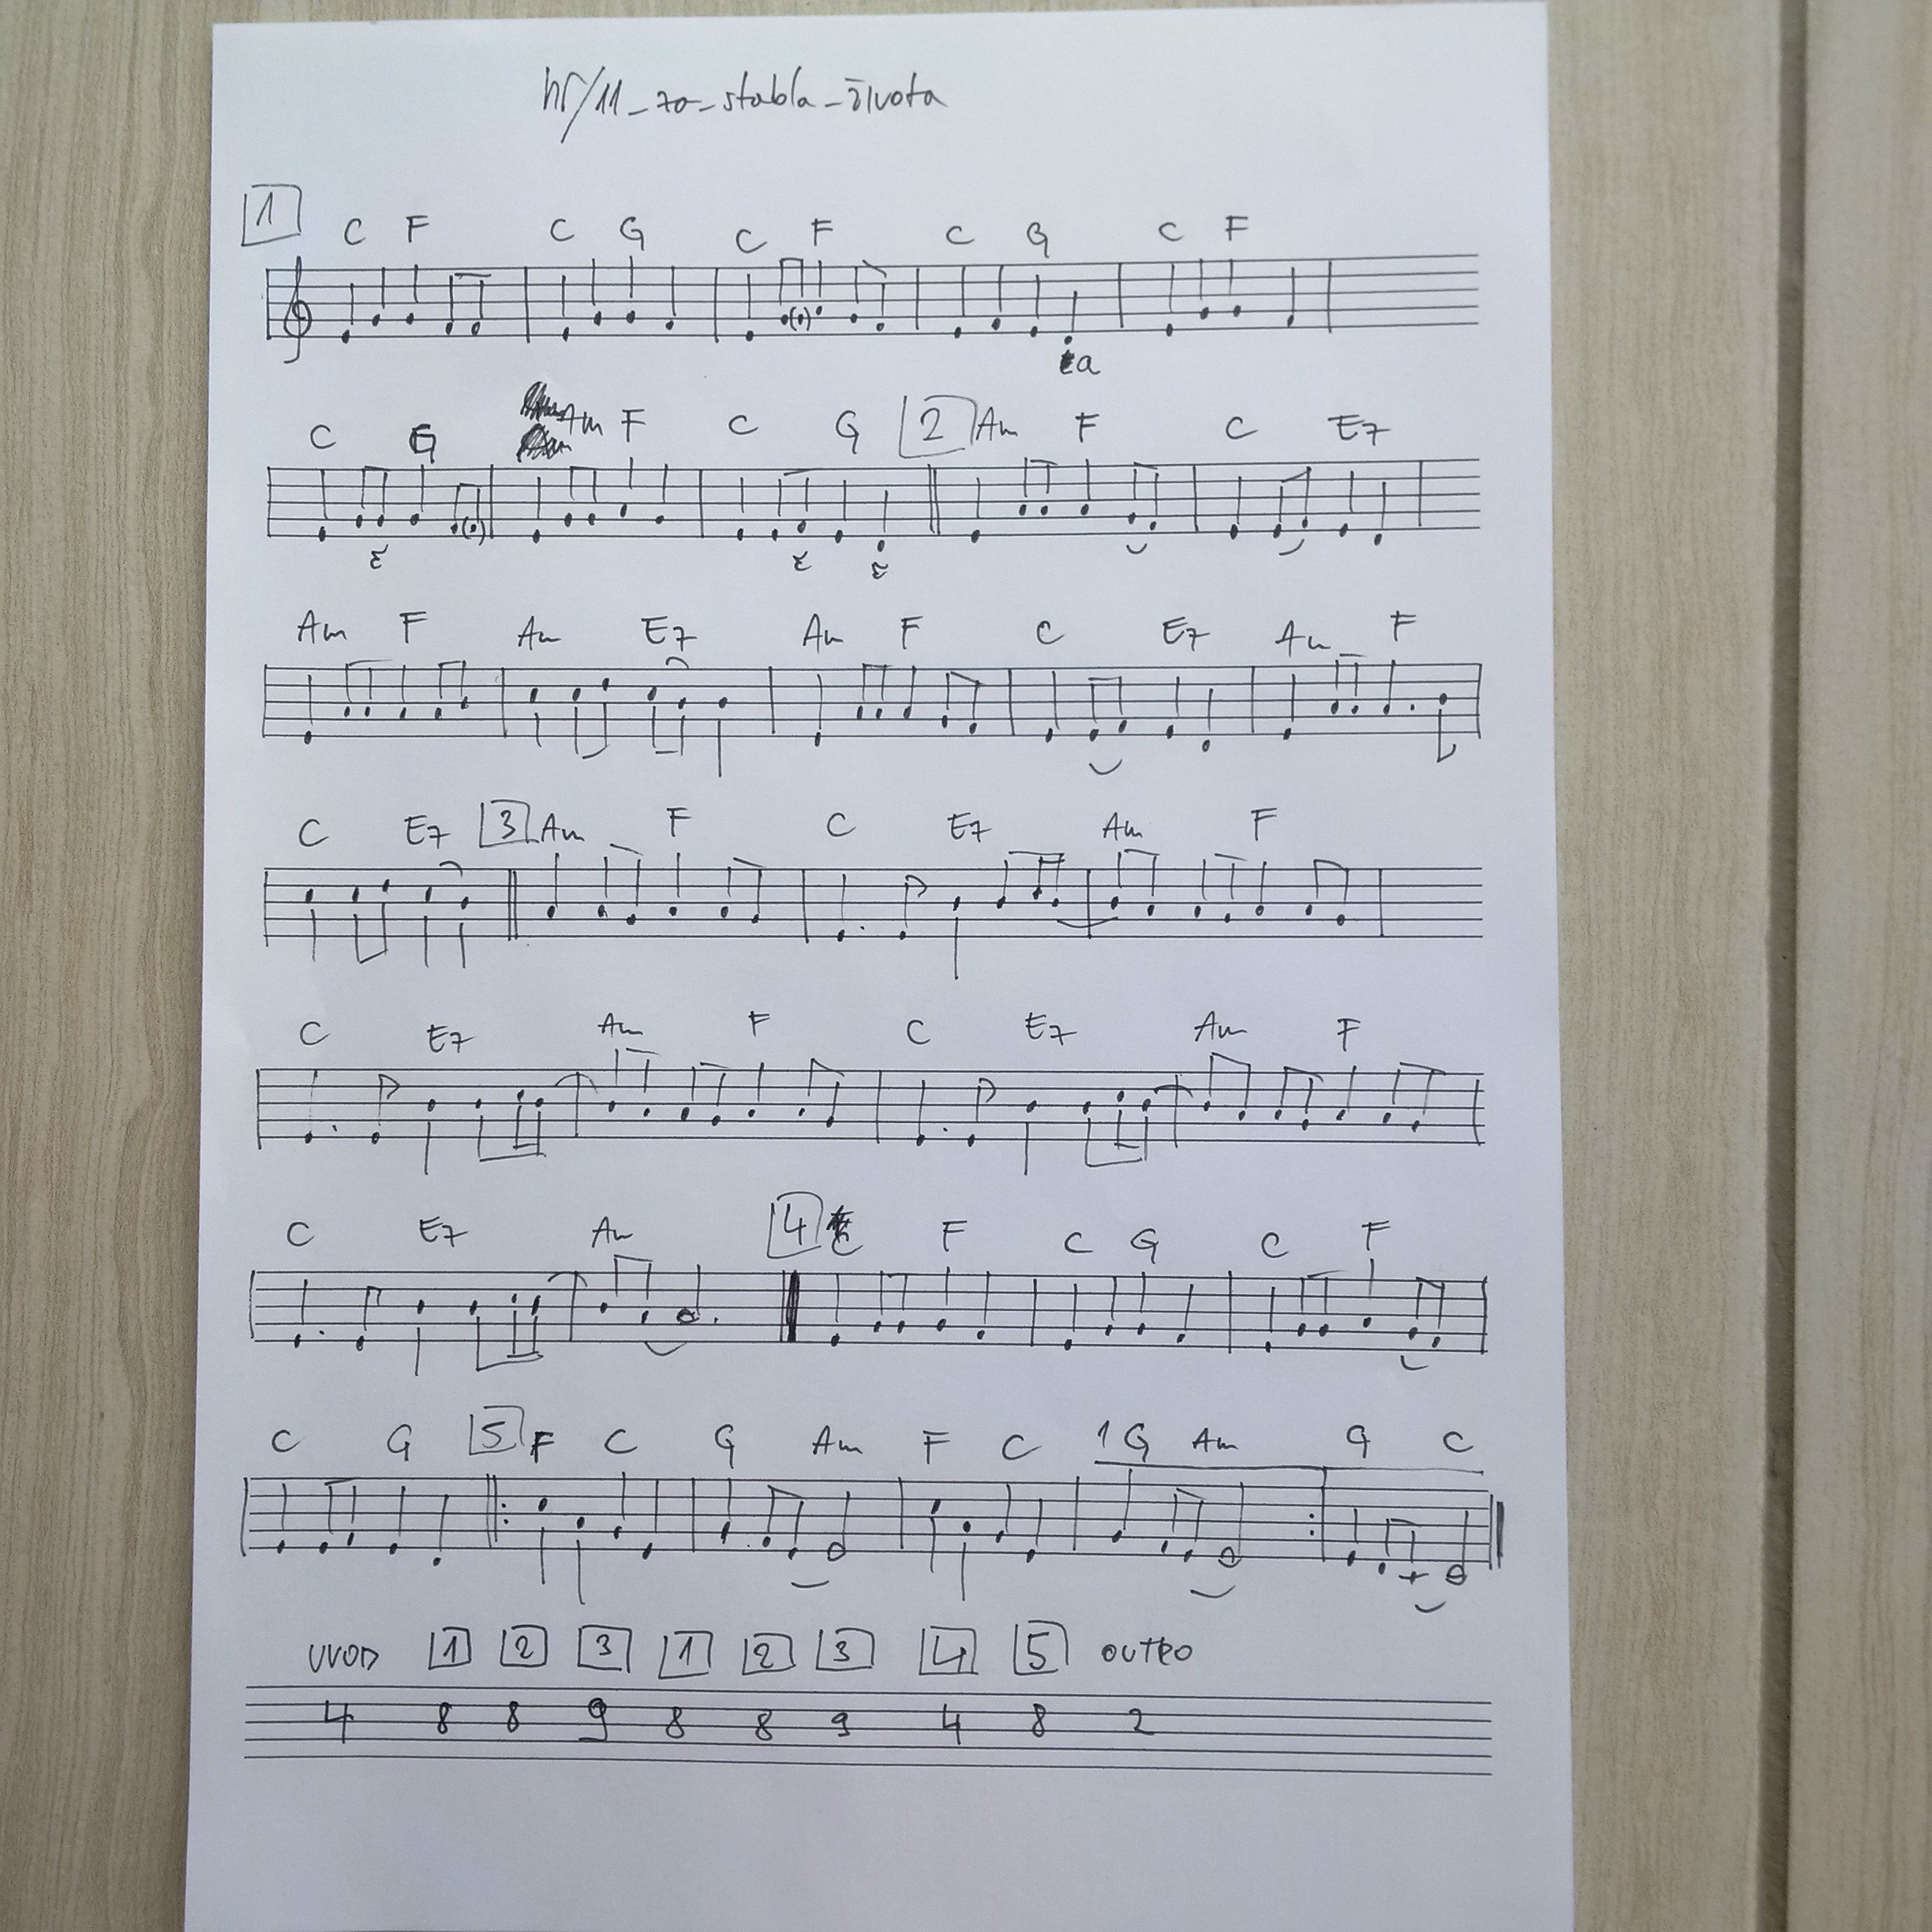 hr/11_za_stabla_života
1 C F C G C F C G C F
a
C G Am F C G 2 Am F C E7
Am F Am E7 Am F C E7 Am F
C E7 3 Am F C E7 Am F
C E7 Am F C E7 Am F
C E7 Am 4 C F C G C F
C G 5 F C G Am F C 1 G Am G C
UVOD 1 2 3 1 2 3 4 5 OUTRO
4 8 8 9 8 8 9 4 8 2